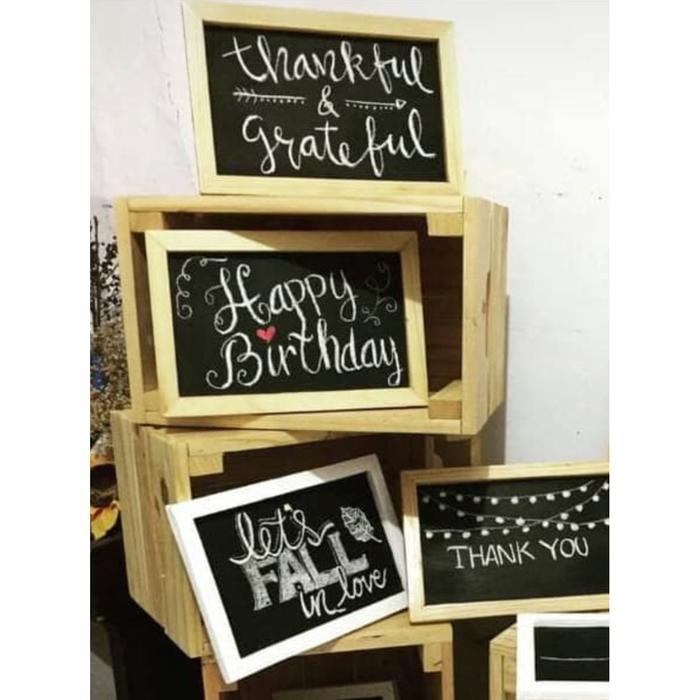 thankful
&
grateful
Happy
Birthday
let's
FALL
in love
THANK YOU